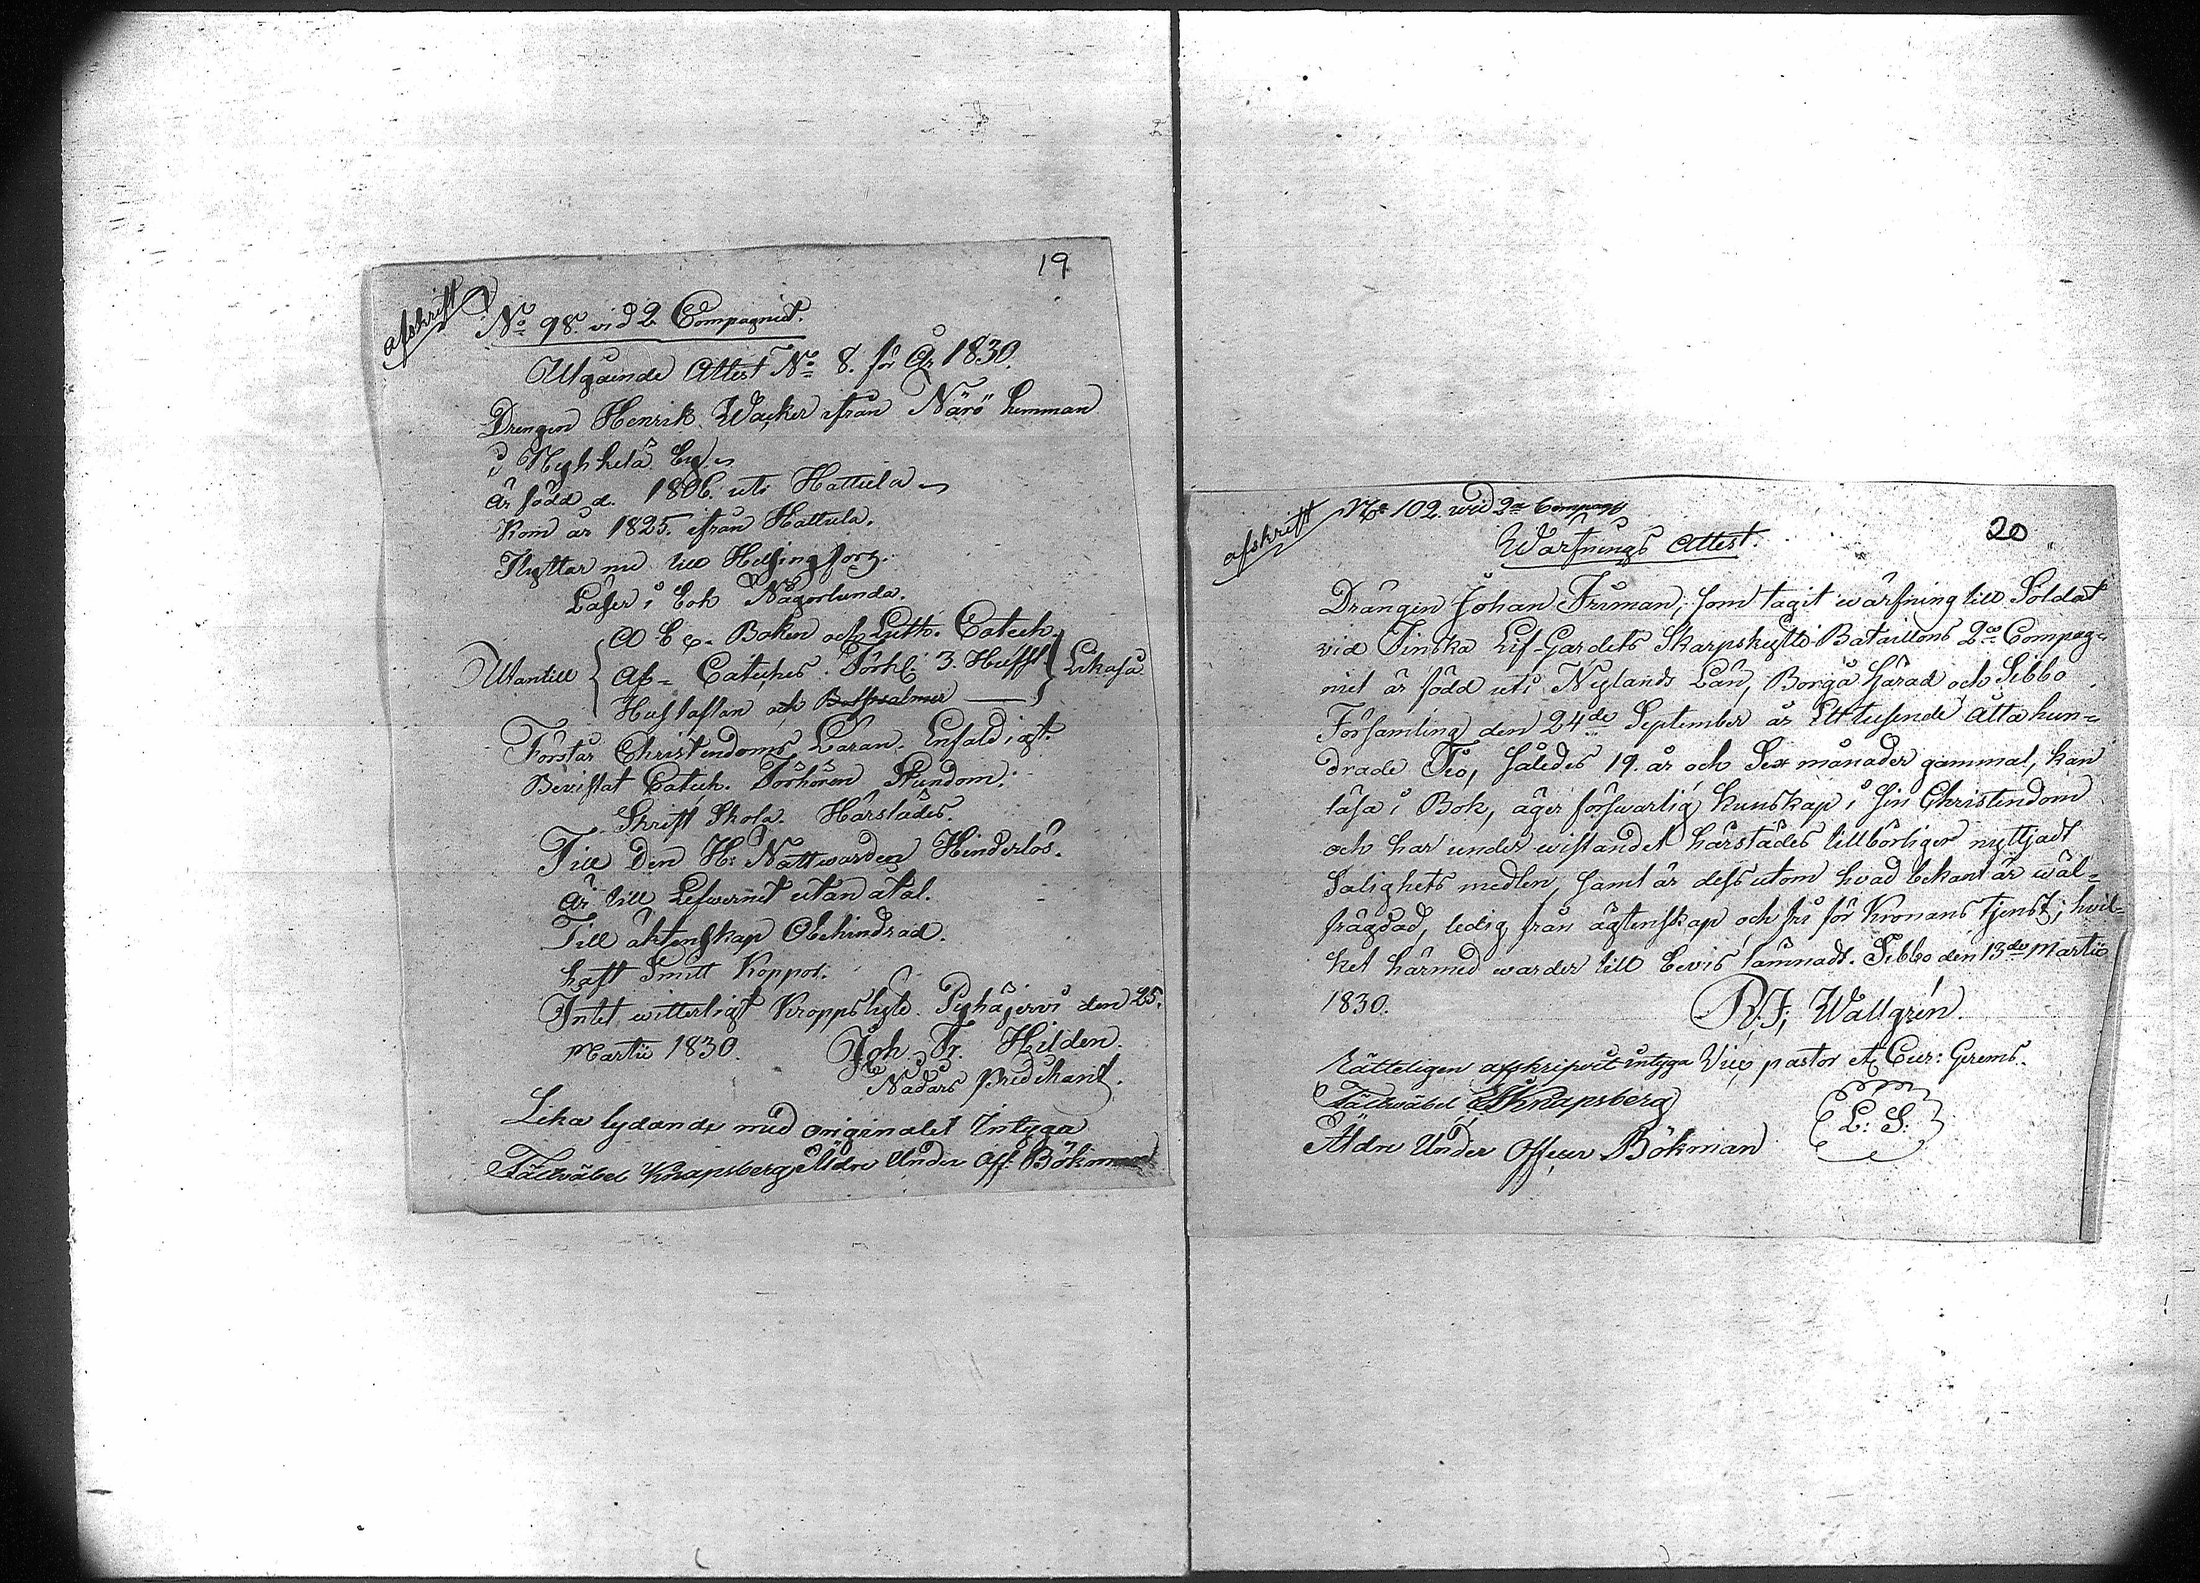 19
afskrift
No 98. vid 2 Compagniet.
Utgående Attest No 8. för År 1830.
Drengen Henrik Wacker ifrån Närö hemman
i Nyhkelä by.
är född d. 1806. uti Hattula
Kom år 1825. ifrån Hattula.
Flyttar nu till Helsingforz.
Läser i bok Någorlunda.
A b c. Boken och Luth. Catech.
Utantill
Af= Cateches. Förkl. 3. Hufst.
Likaså
Hustaflan och Botpsalmer
Förstår Christendoms Läran. Enfaldigt.
Bevistat Catech. Förhören Stundom.
Skrift Skola. Härstädes.
Till Den H: Nattwarden Hinderlös.
Är till Lefwernet utan åtal.
Till äktenskap Obehindrad.
haft Smitt Koppor.
Intet witterligt Kroppslyte. Pyhäjerwi den 25.
Martii 1830.
Joh. Fr. Hilden.
Nådårs Predikant.
Lika lydande med originalet Intyga
Fältväbel Knapsberg, Äldre Under Off: Bökman
20
afskrift
No 102. wid 2a Compag
Warfnings Attest.
Drängen Johan Friman, som tagit wärfning till Soldat
vid Finska Lif-Gardets Skarpskytte Bataillons 2a Compag=
niet är född uti Nylands Län, Borgå Härad och Sibbo
Församling den 24de September år Ett tusende åtta hun=
drade Tio, således 19. år och Sex månader gammal, kan
läsa i Bok, äger förswarlig kunskap i sin Christendom
och har under wistandet härstädes tillbörligen nyttjadt
Salighets medlen, samt är dessutom hvad bekant är wäl=
frägdad, ledig från ägtenskap och fri för Kronans tjenst; hvil=
ket härmed warder till bevis lämnadt. Sibbo den 13de Martii
1830.
R: J; Wallgrén.
Rätteligen afskrifvit intyga
Vice pastor et Cur: Gerens.
Fältväbel Knapsberg
L: S:
Äldre Under Officer Bökman